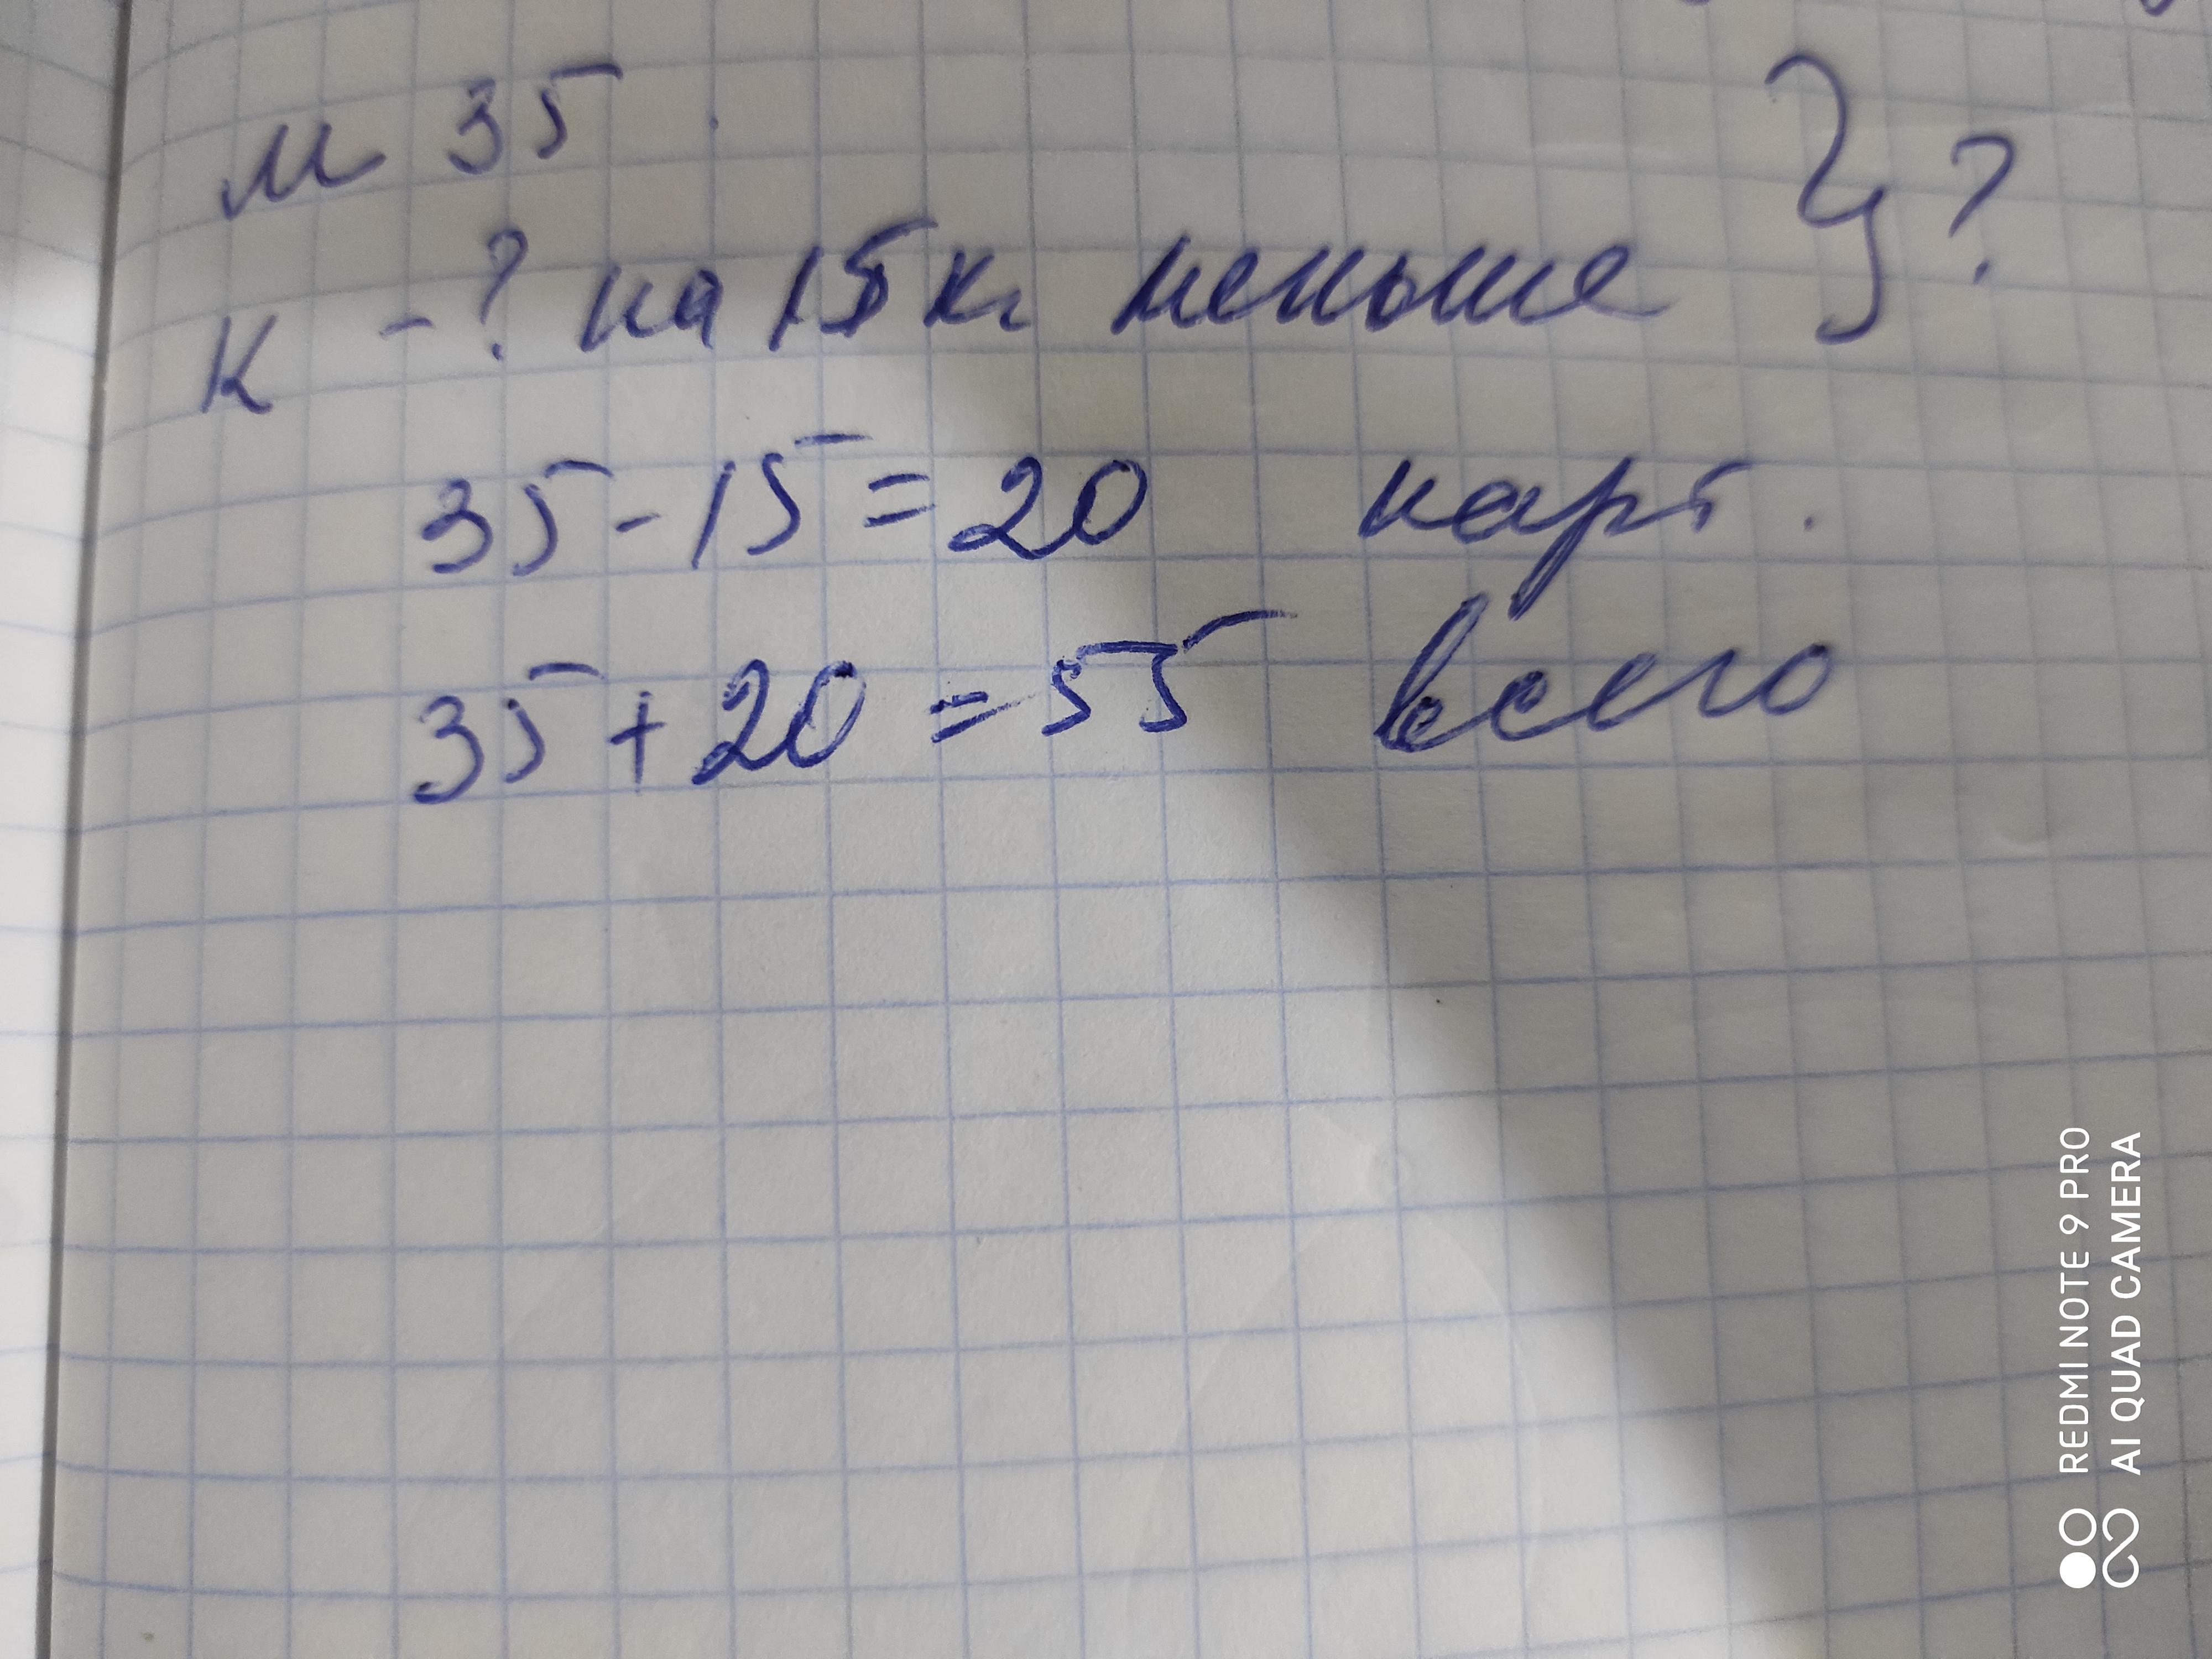 М 35
К - ? на 15 кг меньше } ?
35 - 15 = 20 карт.
35 + 20 = 55 всего
REDMI NOTE 9 PRO
AI QUAD CAMERA